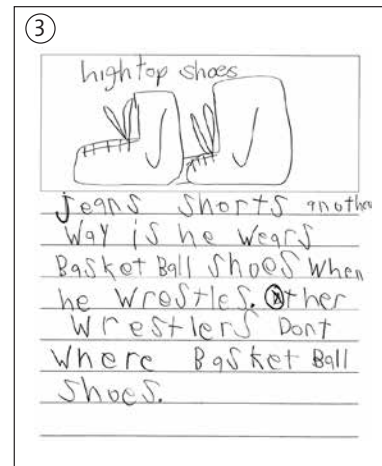 3
hightop shoes
jeans shorts another
Way is he wears
BasketBall shoes when
he wrestles. Other
wrestlers Dont
where Basket Ball
shoes.